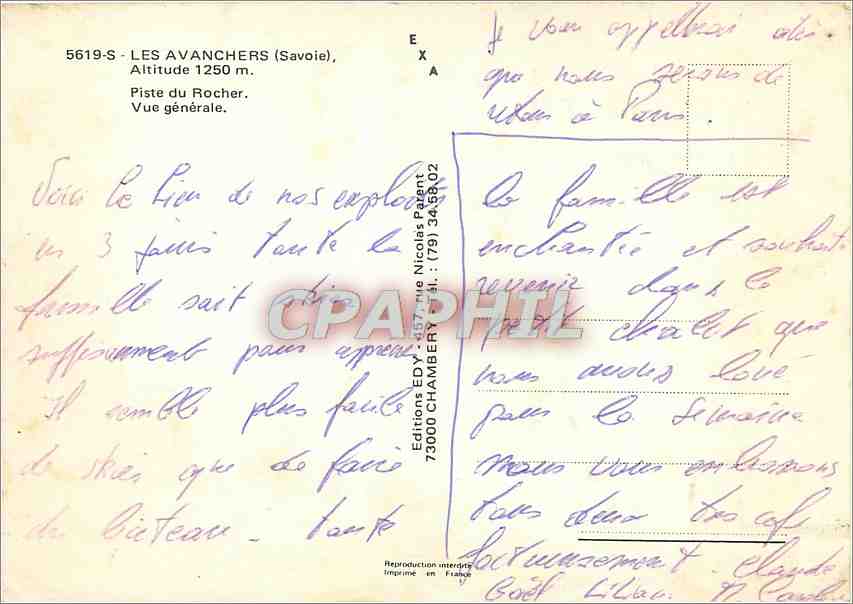 5619-S - LES AVANCHERS (Savoie),
Altitude 1250 m.
Piste du Rocher.
Vue générale.
E
X
A
Voici le lieu de nos exploits
en 3 jours toute la
famille sait skier
suffisamment pour
Il semble plus facile
de skier que de faire
du bateau. toute
la famille est
enchantée et souhaite
revenir dans le
petit chalet que
nous avons loué
pour la semaine
nous vous embrassons
tous deux très
Claude
Gaël Lilian
Je vous appellerai dès
que nous serons de
retour à Paris.
Editions EDY - 457, rue Nicolas Parent
73000 CHAMBERY - Tél. : (79) 34.58.02
CPAPHIL
Reproduction interdite
Imprimé en France